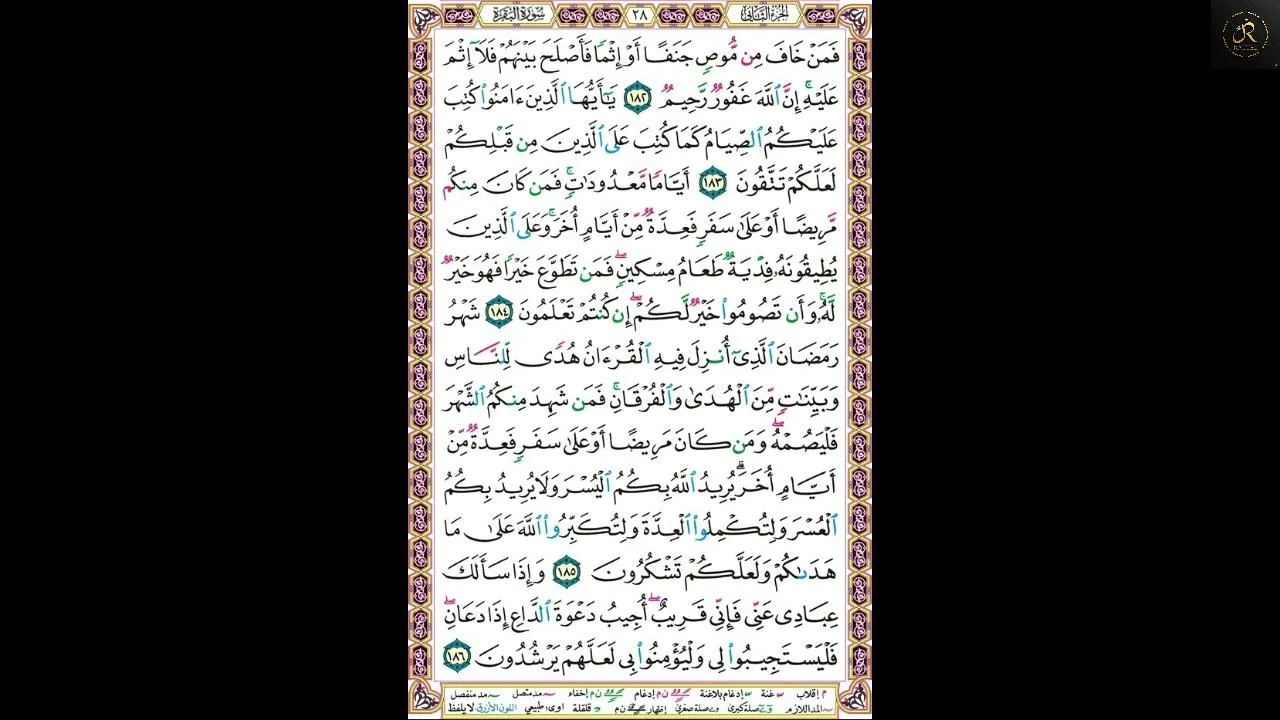 الجزء الثاني ٢٨ سورة البقرة
فَمَنْ خَافَ مِن مُّوصٍ جَنَفًا أَوْ إِثْمًا فَأَصْلَحَ بَيْنَهُمْ فَلَآ إِثْمَ
عَلَيْهِ ۚ إِنَّ ٱللَّهَ غَفُورٌ رَّحِيمٌ ١٨٢ يَٰٓأَيُّهَا ٱلَّذِينَ ءَامَنُوا۟ كُتِبَ
عَلَيْكُمُ ٱلصِّيَامُ كَمَا كُتِبَ عَلَى ٱلَّذِينَ مِن قَبْلِكُمْ
لَعَلَّكُمْ تَتَّقُونَ ١٨٣ أَيَّامًا مَّعْدُودَٰتٍ ۚ فَمَن كَانَ مِنكُم
مَّرِيضًا أَوْ عَلَىٰ سَفَرٍ فَعِدَّةٌ مِّنْ أَيَّامٍ أُخَرَ ۚ وَعَلَى ٱلَّذِينَ
يُطِيقُونَهُۥ فِدْيَةٌ طَعَامُ مِسْكِينٍ ۖ فَمَن تَطَوَّعَ خَيْرًا فَهُوَ خَيْرٌ
لَّهُۥ ۚ وَأَن تَصُومُوا۟ خَيْرٌ لَّكُمْ ۖ إِن كُنتُمْ تَعْلَمُونَ ١٨٤ شَهْرُ
رَمَضَانَ ٱلَّذِىٓ أُنزِلَ فِيهِ ٱلْقُرْءَانُ هُدًى لِّلنَّاسِ
وَبَيِّنَٰتٍ مِّنَ ٱلْهُدَىٰ وَٱلْفُرْقَانِ ۚ فَمَن شَهِدَ مِنكُمُ ٱلشَّهْرَ
فَلْيَصُمْهُ ۖ وَمَن كَانَ مَرِيضًا أَوْ عَلَىٰ سَفَرٍ فَعِدَّةٌ مِّنْ
أَيَّامٍ أُخَرَ ۗ يُرِيدُ ٱللَّهُ بِكُمُ ٱلْيُسْرَ وَلَا يُرِيدُ بِكُمُ
ٱلْعُسْرَ وَلِتُكْمِلُوا۟ ٱلْعِدَّةَ وَلِتُكَبِّرُوا۟ ٱللَّهَ عَلَىٰ مَا
هَدَىٰكُمْ وَلَعَلَّكُمْ تَشْكُرُونَ ١٨٥ وَإِذَا سَأَلَكَ
عِبَادِى عَنِّى فَإِنِّى قَرِيبٌ ۖ أُجِيبُ دَعْوَةَ ٱلدَّاعِ إِذَا دَعَانِ ۖ
فَلْيَسْتَجِيبُوا۟ لِى وَلْيُؤْمِنُوا۟ بِى لَعَلَّهُمْ يَرْشُدُونَ ١٨٦
م إقلاب غنة إدغام بلاغنة ن م إدغام ن م إخفاء مد متصل مد منفصل
المد اللازم صلة كبرى صلة صغرى إظهار ن م قلقلة اوى، طبيعي اللون الأزرق لا يلفظ